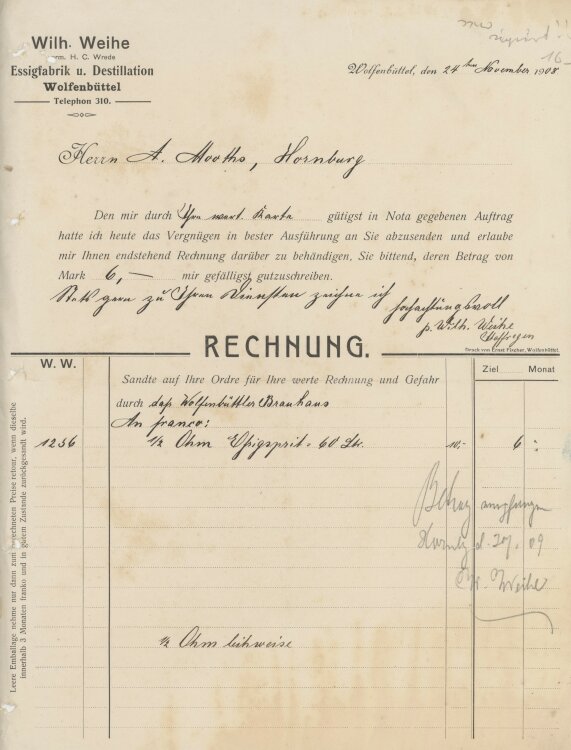 Wilh. Weihe
vorm. H. C. Wrede
Essigfabrik u. Destillation
Wolfenbüttel
Telephon 310.
16-
Wolfenbüttel, den 24ten November 1908
Herrn A. Mooths, Hornburg
Den mir durch Ihre wert. Karte gütigst in Nota gegebenen Auftrag
hatte ich heute das Vergnügen in bester Ausführung an Sie abzusenden und erlaube
mir Ihnen endstehend Rechnung darüber zu behändigen, Sie bittend, deren Betrag von
Mark 6,— mir gefälligst gutzuschreiben.
Stets gern zu Ihren Diensten zeichne ich
hochachtungsvoll
p. Wilh. Weihe
RECHNUNG.
Druck von Ernst Fischer, Wolfenbüttel.
W. W.
Ziel Monat
Sandte auf Ihre Ordre für Ihre werte Rechnung und Gefahr
durch das Wolfenbüttler Brauhaus
An franco:
1236 1/2 Ohm Essigsprit = 60 Ltr. 10,- 6 :
Betrag empfangen
d. 09
W. Weihe
1/2 Ohm leihweise
Leere Emballage nehme nur dann zum berechneten Preise retour, wenn dieselbe
innerhalb 3 Monaten franko und in gutem Zustande zurückgesandt wird.